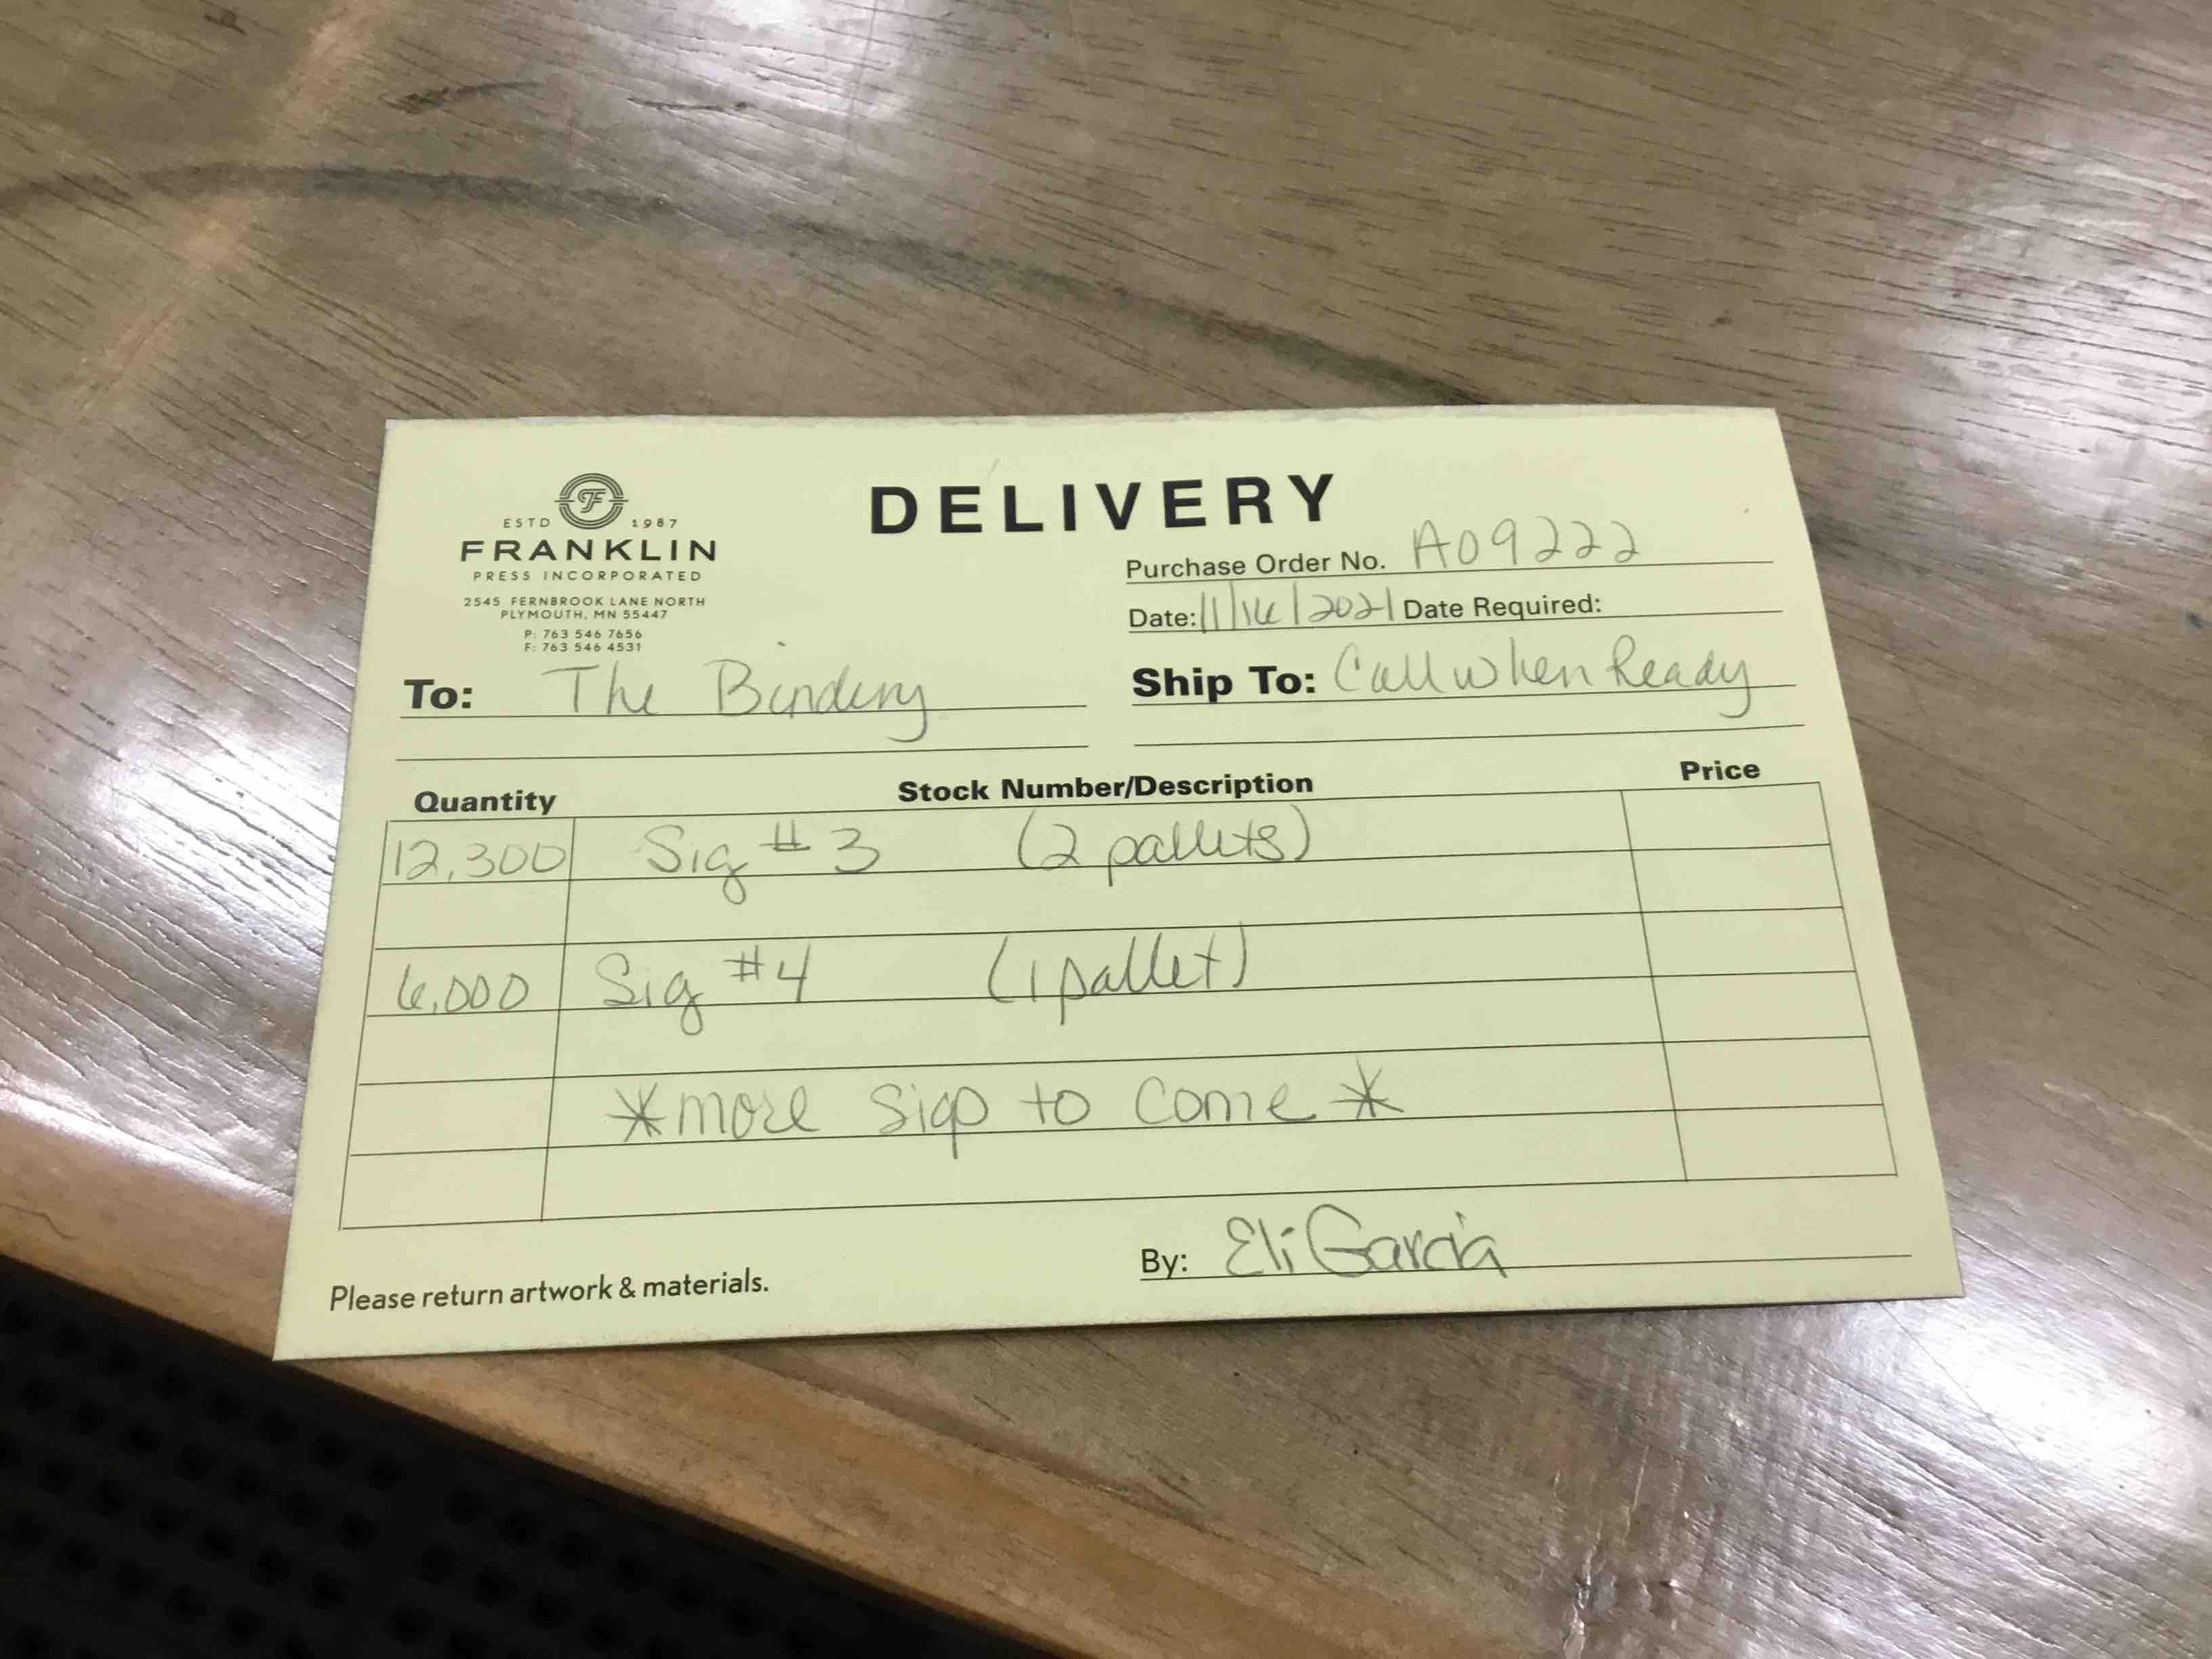 DELIVERY
ESTD 1987
FRANKLIN
PRESS INCORPORATED
2545 FERNBROOK LANE NORTH
PLYMOUTH, MN 55447
P: 763 546 7656
F: 763 546 4531
Purchase Order No. A09222
Date: 11/16/2021 Date Required:
To: The Bindery
Ship To: Call when Ready
Quantity Stock Number/Description Price
12,300 Sig #3 (2 pallets)
6,000 Sig #4 (1 pallet)
*more sigs to come*
By: Eli Garcia
Please return artwork & materials.